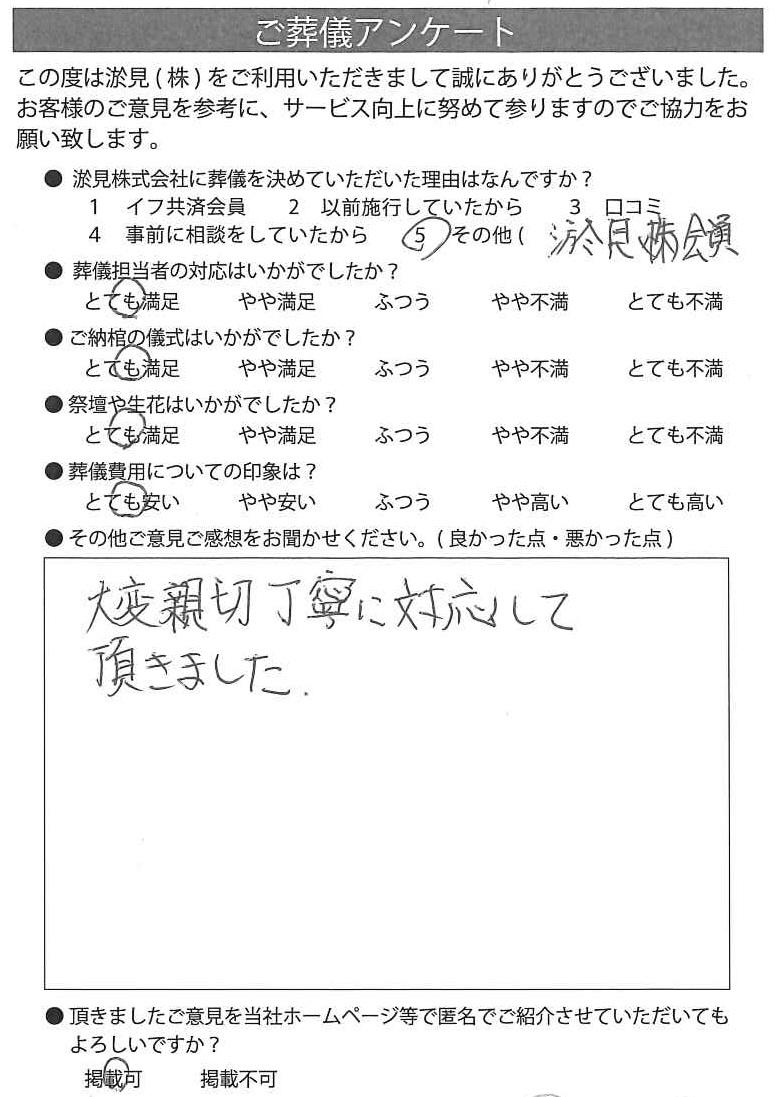 ご葬儀アンケート
この度は淤見(株)をご利用いただきまして誠にありがとうございました。
お客様のご意見を参考に、サービス向上に努めて参りますのでご協力をお
願い致します。
● 淤見株式会社に葬儀を決めていただいた理由はなんですか？
1 イフ共済会員 2 以前施行していたから 3 口コミ
4 事前に相談をしていたから 5 その他( 淤見(株)会員
● 葬儀担当者の対応はいかがでしたか？
とても満足 やや満足 ふつう やや不満 とても不満
● ご納棺の儀式はいかがでしたか？
とても満足 やや満足 ふつう やや不満 とても不満
● 祭壇や生花はいかがでしたか？
とても満足 やや満足 ふつう やや不満 とても不満
● 葬儀費用についての印象は？
とても安い やや安い ふつう やや高い とても高い
● その他ご意見ご感想をお聞かせください。(良かった点・悪かった点)
大変親切丁寧に対応して
頂きました.
● 頂きましたご意見を当社ホームページ等で匿名でご紹介させていただいても
よろしいですか？
掲載可 掲載不可